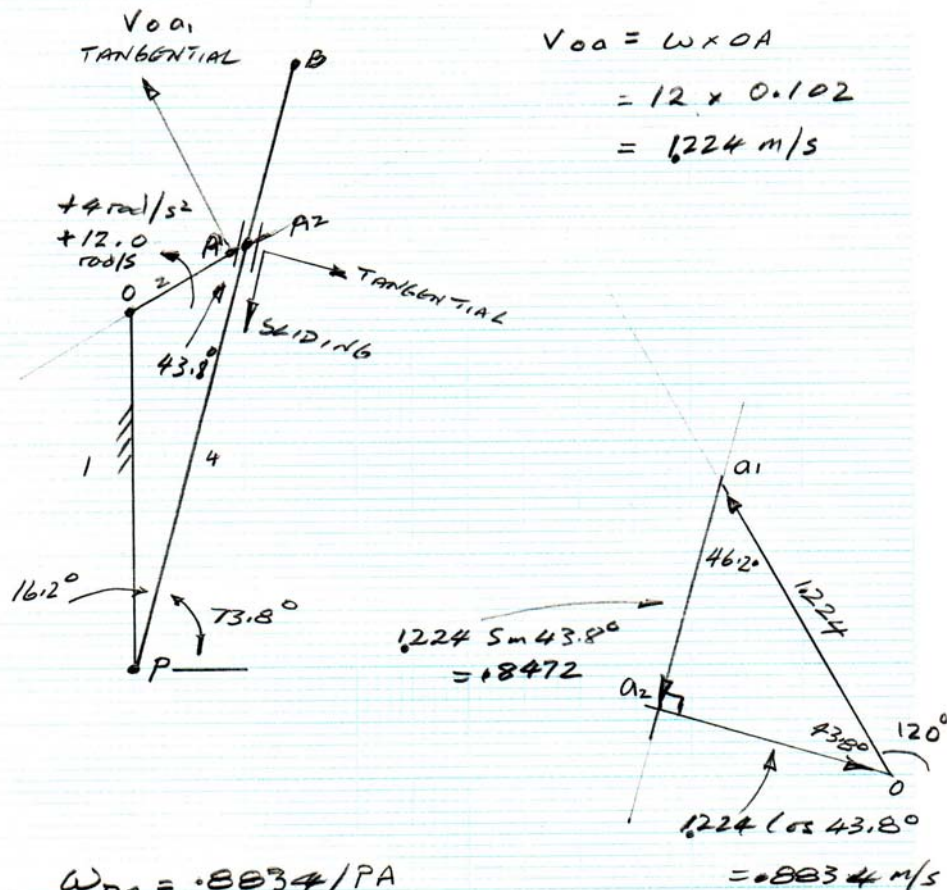 Voa,
TANGENTIAL
B
Voa = ω x OA
= 12 x 0.102
= 1.224 m/s
+4 rad/s²
+12.0
rad/s
A'
A2
2
O
TANGENTIAL
SLIDING
43.8°
1
4
16.2°
73.8°
P
a1
46.2°
1.224
1.224 Sin 43.8°
= .8472
a2
43.8°
120°
O
1.224 Cos 43.8°
= .8834 m/s
= .8834/PA